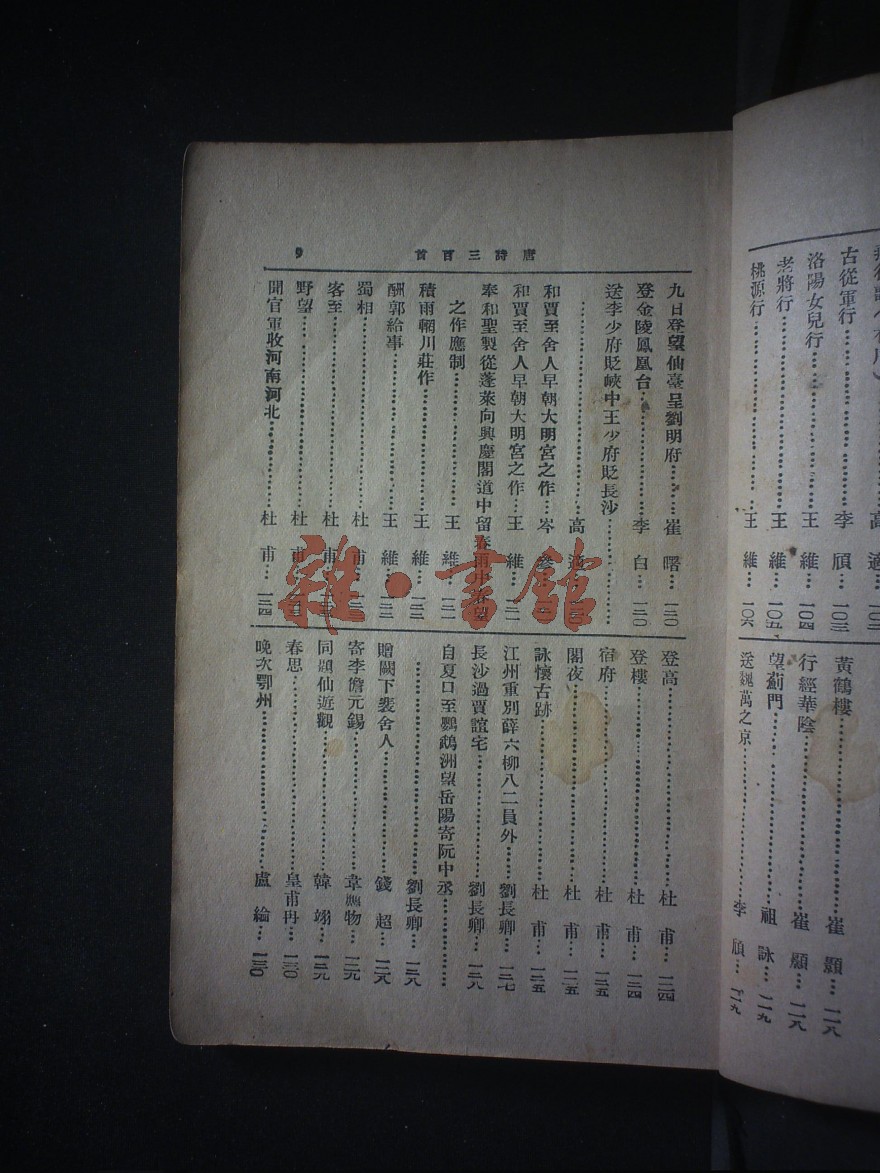 古從軍行……李頎…一〇三
洛陽女兒行……王維…一〇四
老將行……王維…一〇五
桃源行……王維…一〇六
黃鶴樓……崔顥…一一八
行經華陰……崔顥…一一八
望薊門……祖詠…一一九
送魏萬之京……李頎…一一九
唐詩三百首
9
九日登望仙臺呈劉明府……崔曙…一二〇
登金陵鳳凰台……李白…一二〇
送李少府貶峽中王少府貶長沙……
……高適…一二〇
和賈至舍人早朝大明宮之作…岑參…
和賈至舍人早朝大明宮之作…王維…二一
奉和聖製從蓬萊向興慶閣道中留春雨中春望
之作應制……王維…
積雨輞川莊作……王維…一二二
酬郭給事……王維…
蜀相……杜甫…
客至……杜甫…
野望……杜甫…
聞官軍收河南河北……杜甫…一二四
登高……杜甫…一二四
登樓……杜甫…一二四
宿府……杜甫…一二五
閣夜……杜甫…一二五
詠懷古跡……杜甫…一二五
江州重別薛六柳八二員外……劉長卿…一二七
長沙過賈誼宅……劉長卿…一二八
自夏口至鸚鵡洲望岳陽寄阮中丞……
……劉長卿…一二八
贈闕下裴舍人……錢起…一二八
寄李儋元錫……韋應物…一二九
同題仙遊觀……韓翃…一二九
春思……皇甫冉…一三〇
晚次鄂州……盧綸…一三〇
雜·書館